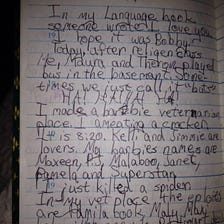 In my Language book
someone wrote I love you
I hope it was Bobby.
Today, after religen class
Me, Maura and Therese played
bus in the basement. Some-
times we just call it "bots"
HA! HA! HA! HA!
I made a barbie veterinary
place. I am eating a cracker.
It is 8:20. Kelli and Jimmie are
lovers. My barbies names are
Maxeen, PJ, Malaboo, Janet,
Pamela and Superstar.
I just killed a spider.
In my vet place, the
are family book, Mall, Mad